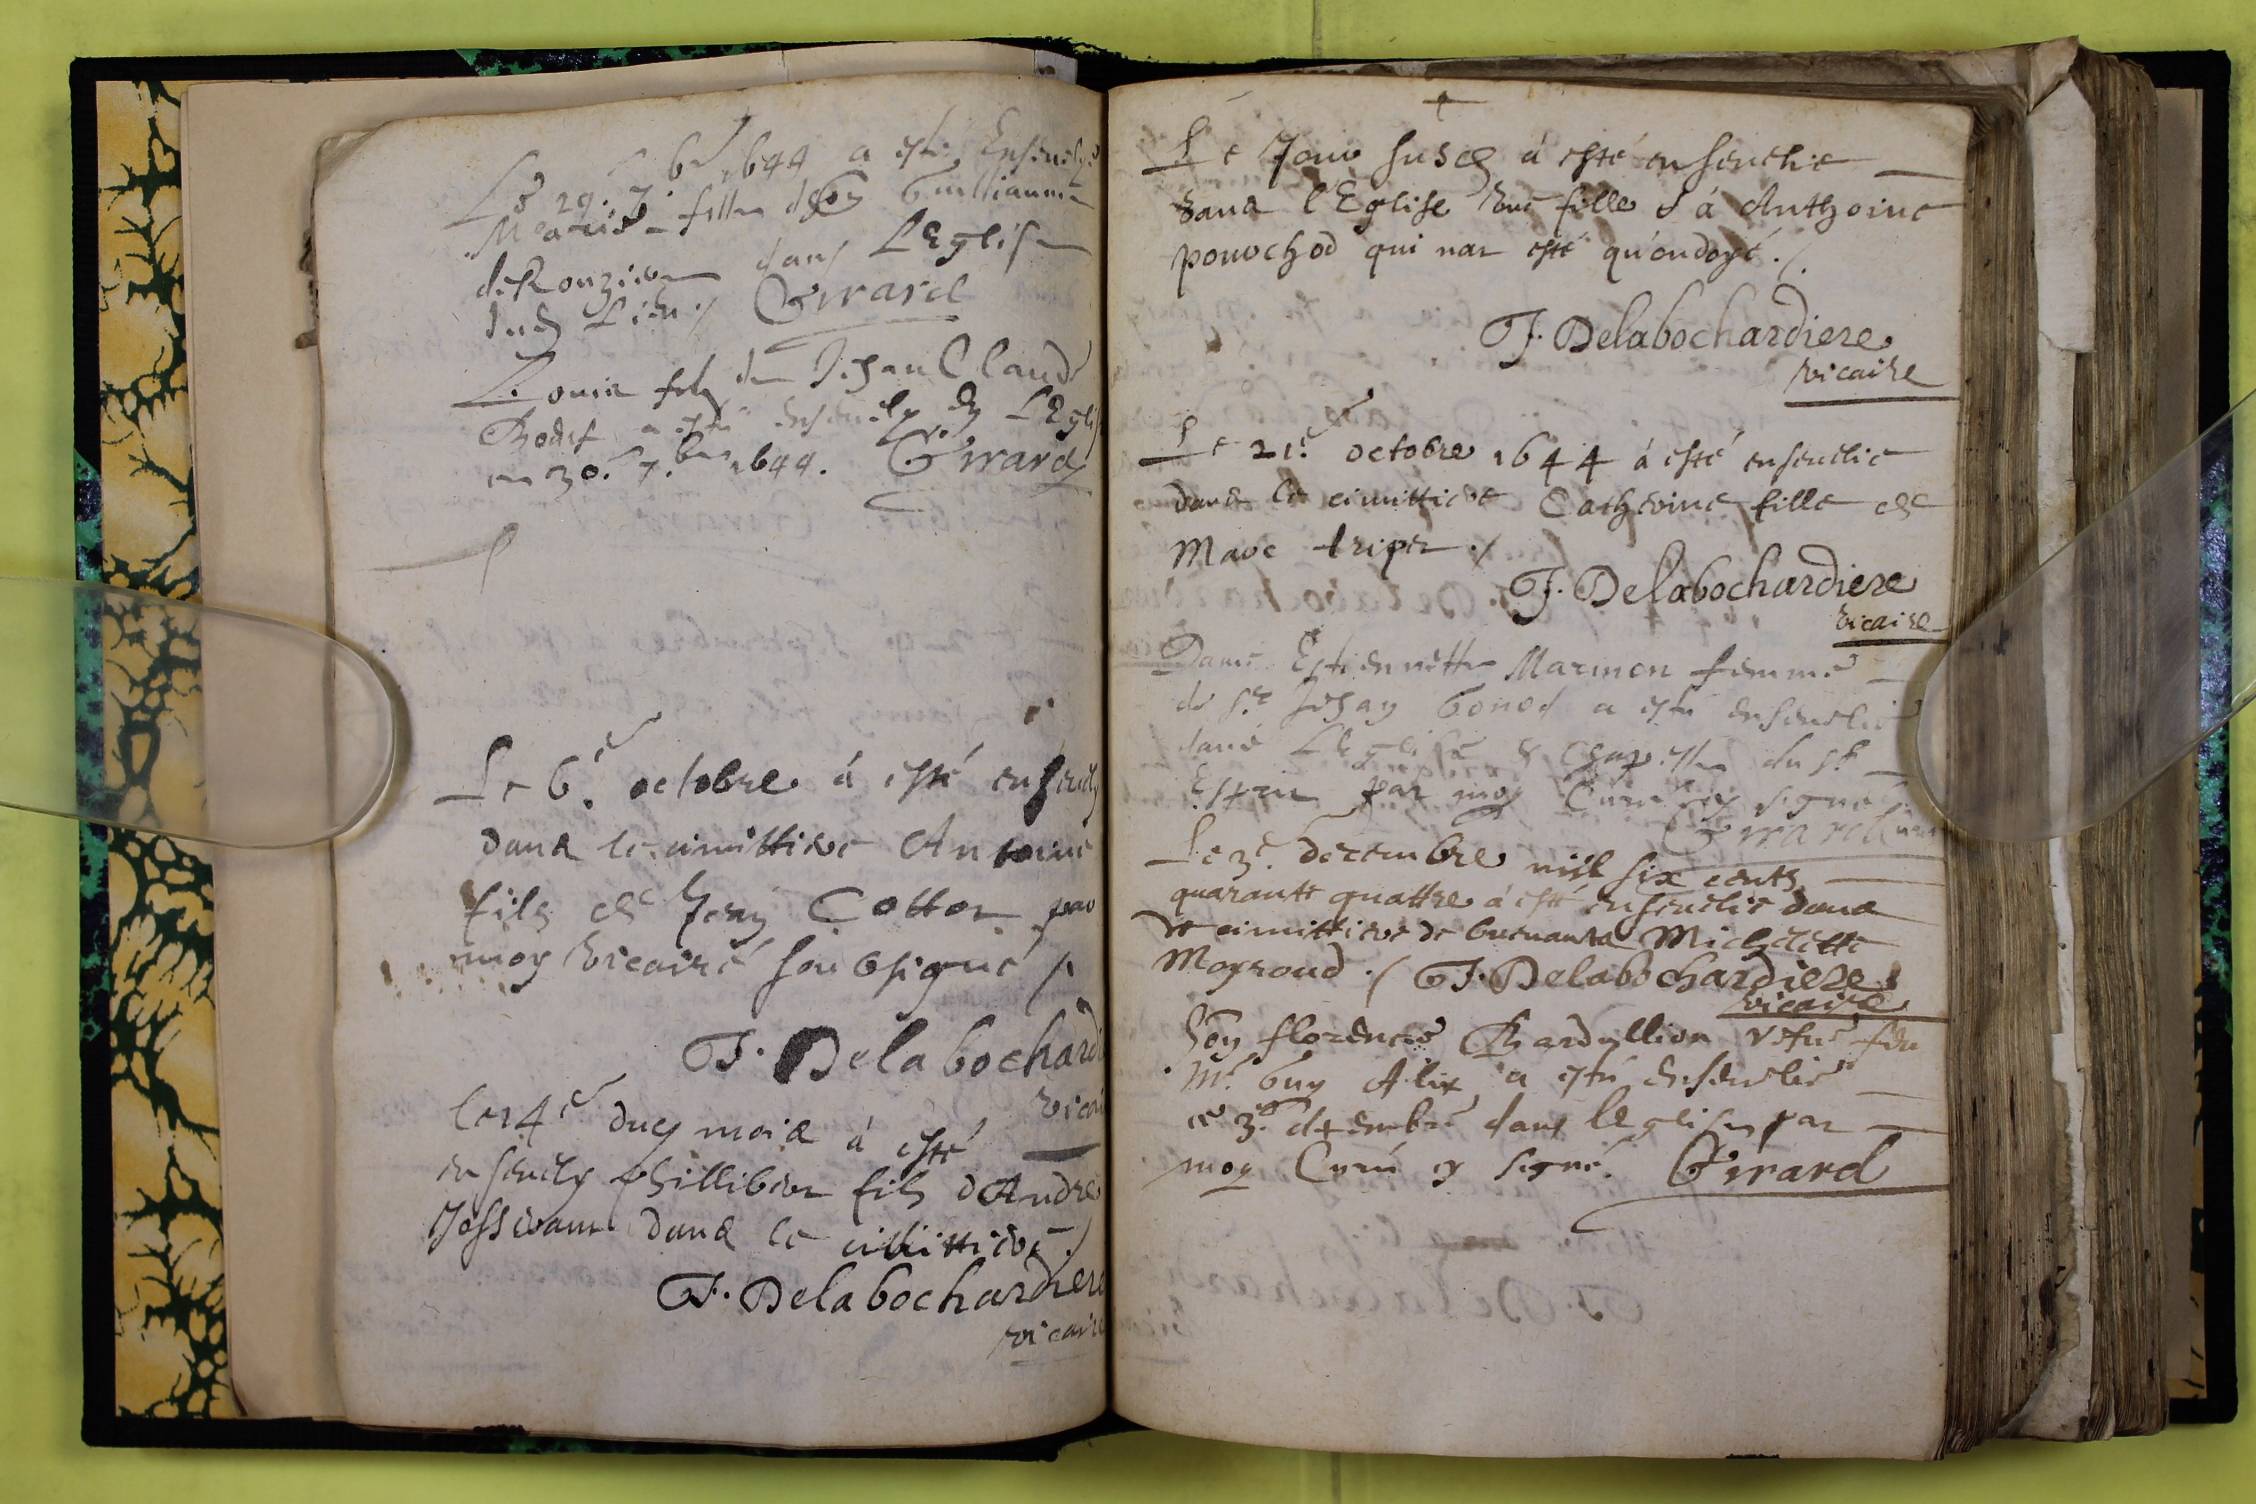 Le 29.e 7.bre 1644 a esté Ensevelye
Marie fille de feu Guilliaume
de Rouziere dans L'Eglise
dud Lieu ./ Girard
Louis filz de Jehan Claude
Bodet a esté ensevely en L'Eglise
ce 30.e 7.bre 1644. Girard
Le 6.e octobre á esté ensevely
dans le cimittiere Antoine
filz de Jean Cotton par
moy vicaire soubsigné ./
F. Delabochardi
vicai
le 14e duq mois á esté
ensevely Phillibert filz d'André
Josserand dans le cimittiere ./
F. Delabochardiere
vicaire
Le Jour susd á esté ensevelie
dans l'Eglise une fille d'á Anthoine
pourchod qui nat esté qu'ondoyé ./.
F. Delabochardiere
vicaire
Le 21.e octobre 1644 á esté ensevelie
dans le cimittiere Catherine fille de
Marc tripet ./
F. Delabochardiere
vicaire
Dame Estiennette Marmon femme
de sr. Jehan Gonod a esté ensevelie
dans L'Eglise & chapelle du st
Esprit par moy Curé cy signé
Girard curé
Le 3.e decembre mil six cents
quarante quattre á esté ensevelie dans
le cimittiere de Michelette
Moyroud ./ F. Delabochardiere
vicaire
hon florence Bardullion vefve feu
Mr. Guy Alix a esté ensevelie
ce 3.e decembre dans leglise par
moy Curé cy signé. Girard